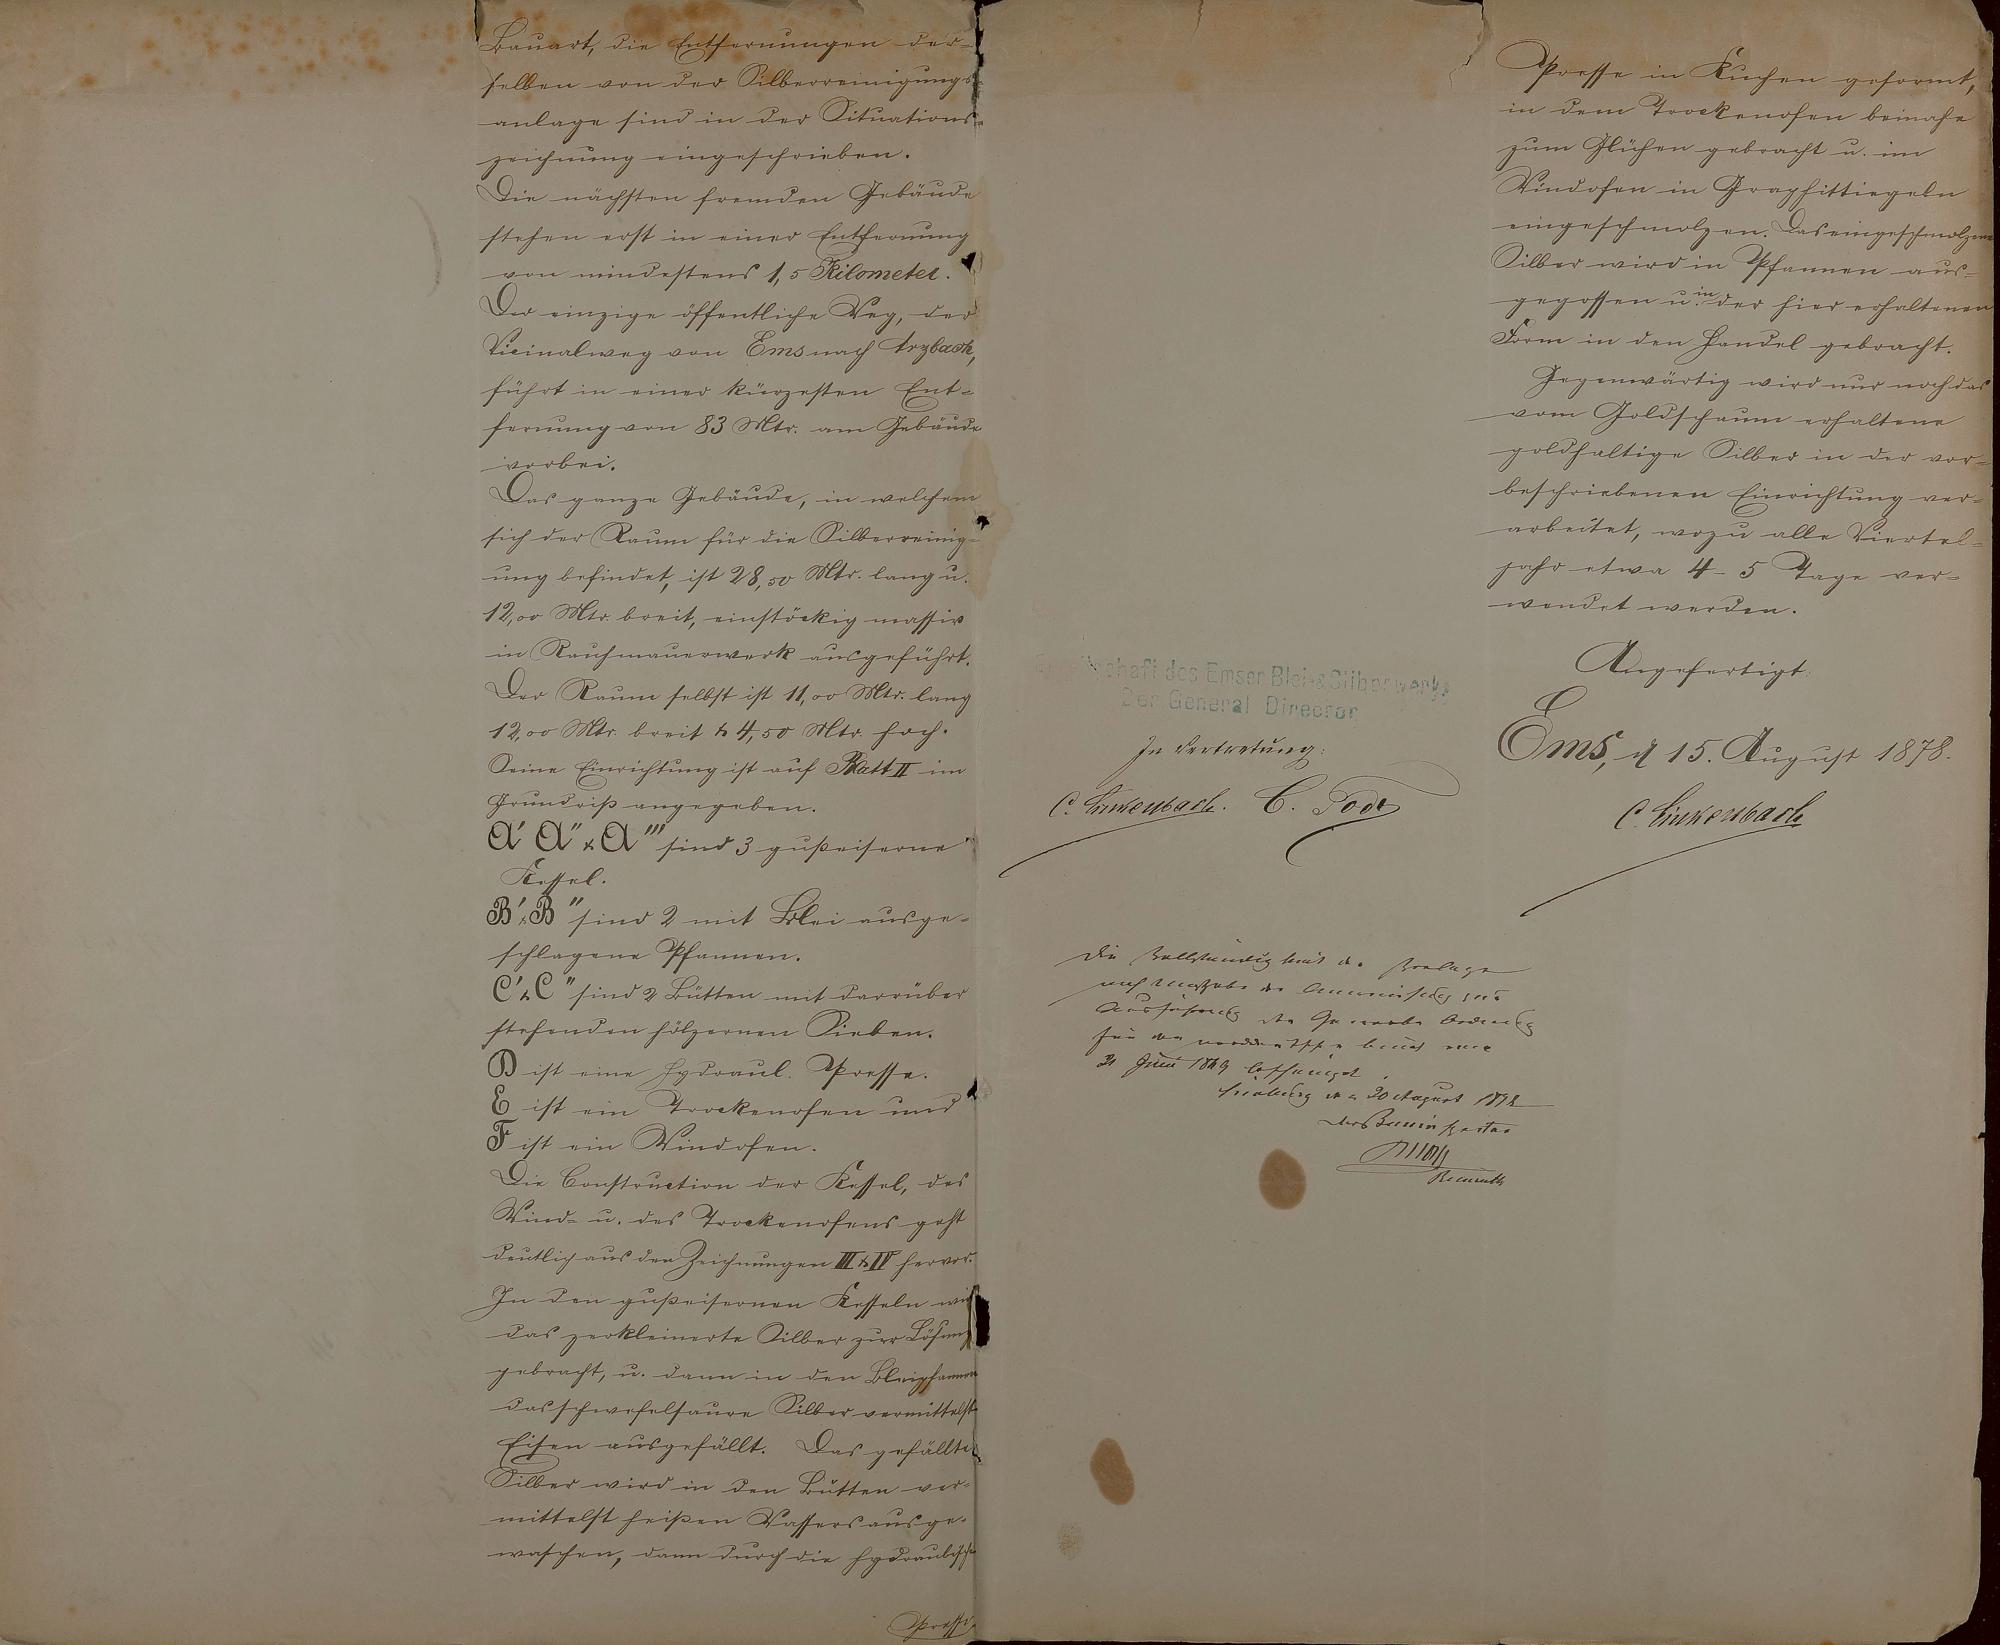 Bauart, die Entfernungen der-
selben von der Silberreinigungs-
anlage sind in der Situations-
zeichnung eingeschrieben.
Die nächsten fremden Gebäude
stehen erst in einer Entfernung
von mindestens 1,5 Kilometer.
Der einzige öffentliche Weg, der
Vicinalweg von Ems nach Arzbach,
führt in einer kürzesten Ent-
fernung von 83 Mtr. am Gebäude
vorbei.
Das ganze Gebäude, in welchem
sich der Raum für die Silberreinig-
ung befindet, ist 28,50 Mtr. lang u.
12,00 Mtr. breit, einstöckig massiv
in Rauhmauerwerk ausgeführt.
Der Raum selbst ist 11,00 Mtr. lang
12,00 Mtr. breit & 4,50 Mtr. hoch.
Seine Einrichtung ist auf Blatt II im
Grundriß angegeben.
A' A'' & A''' sind 3 gußeiserne
Kessel.
B' & B'' sind 2 mit Blei ausge-
schlagene Pfannen.
C' & C'' sind 2 Bütten mit darrüber
stehenden hölzernen Sieben.
D ist eine hydraul. Presse.
E ist ein Trockenofen und
F ist ein Windofen.
Die Construction der Kessel, des
Wind- u. des Trockenofens geht
deutlich aus den Zeichnungen III & IV hervor.
In den gußeisernen Kesseln wird
das zerkleinerte Silber zur Lösung
gebracht, u. dann in den Bleipfannen
das schwefelsaure Silber vermittelst
Eisen ausgefällt. Das gefällte
Silber wird in den Bütten ver-
mittelst heißen Wassers ausge-
waschen, dann durch die hydraulische
Presse
Gesellschaft des Emser Blei- & Silberwerks
Der General Director
In Vertretung:
C. Linkenbach. C.
Die Vollständigkeit der Vorlage
nach Maßgabe der Anweisung zur
Ausführung der Gewerbe Ordnung
für den norddeutschen Bund vom
21 Juni 1869 bescheinigt
den 20 August 1878
Der Bauinspector
Presse in Kuchen geformt,
in dem Trockenofen beinahe
zum Glühen gebracht u. im
Windofen in Graphittiegeln
eingeschmolzen. Das eingeschmolzene
Silber wird in Pfannen aus-
gegossen u. in der hier erhaltenen
Form in den Handel gebracht.
Gegenwärtig wird nur noch das
vom Goldschaum erhaltene
goldhaltige Silber in der vor-
beschriebenen Einrichtung ver-
arbeitet, wozu alle Viertel-
jahr etwa 4-5 Tage ver-
wendet werden.
Angefertigt:
Ems, d 15. August 1878.
C. Linkenbach